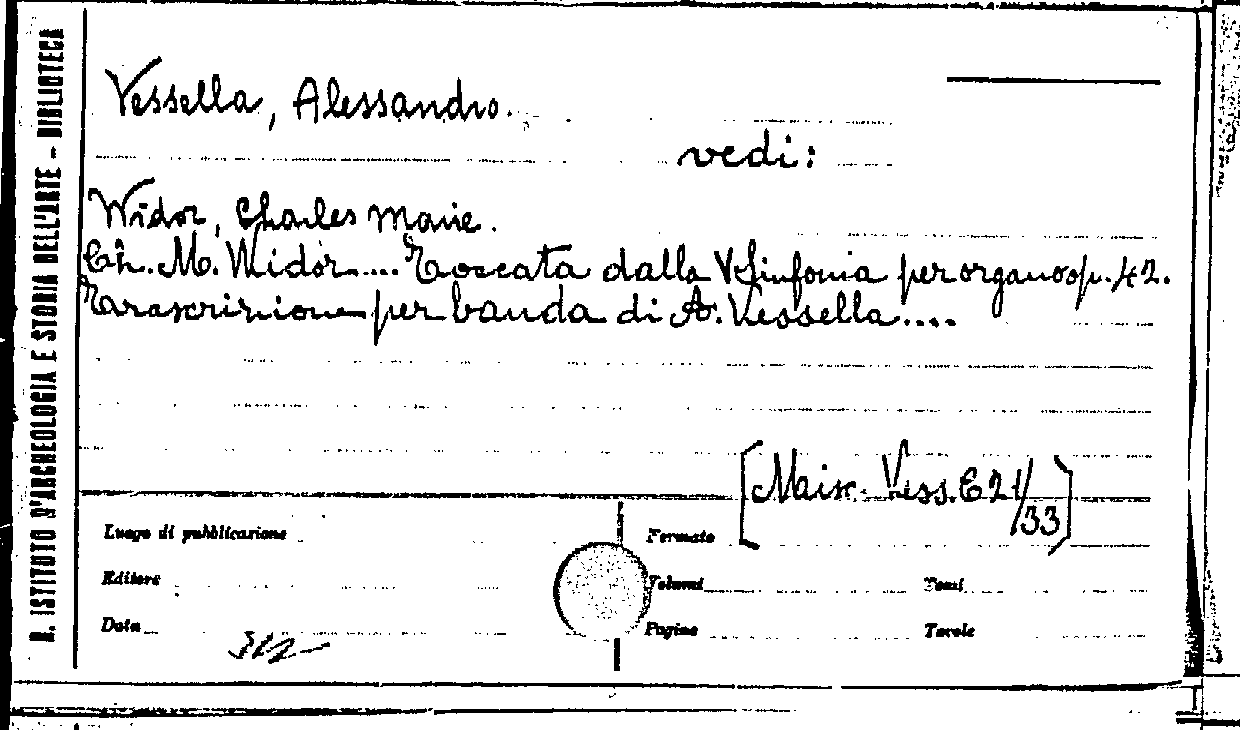 R. ISTITUTO D'ARCHEOLOGIA E STORIA DELL'ARTE - BIBLIOTECA
Vessella, Alessandro.
vedi:
Widor, Charles Marie.
Ch. M. Widor.... Toccata dalla V Sinfonia per organo op. 42.
Trascrizione per banda di A. Vessella....
[Misc. Vess. C 21/33]
Luogo di pubblicazione
Formato
Editore
Volumi
Tomi
Data
Pagine
Tavole